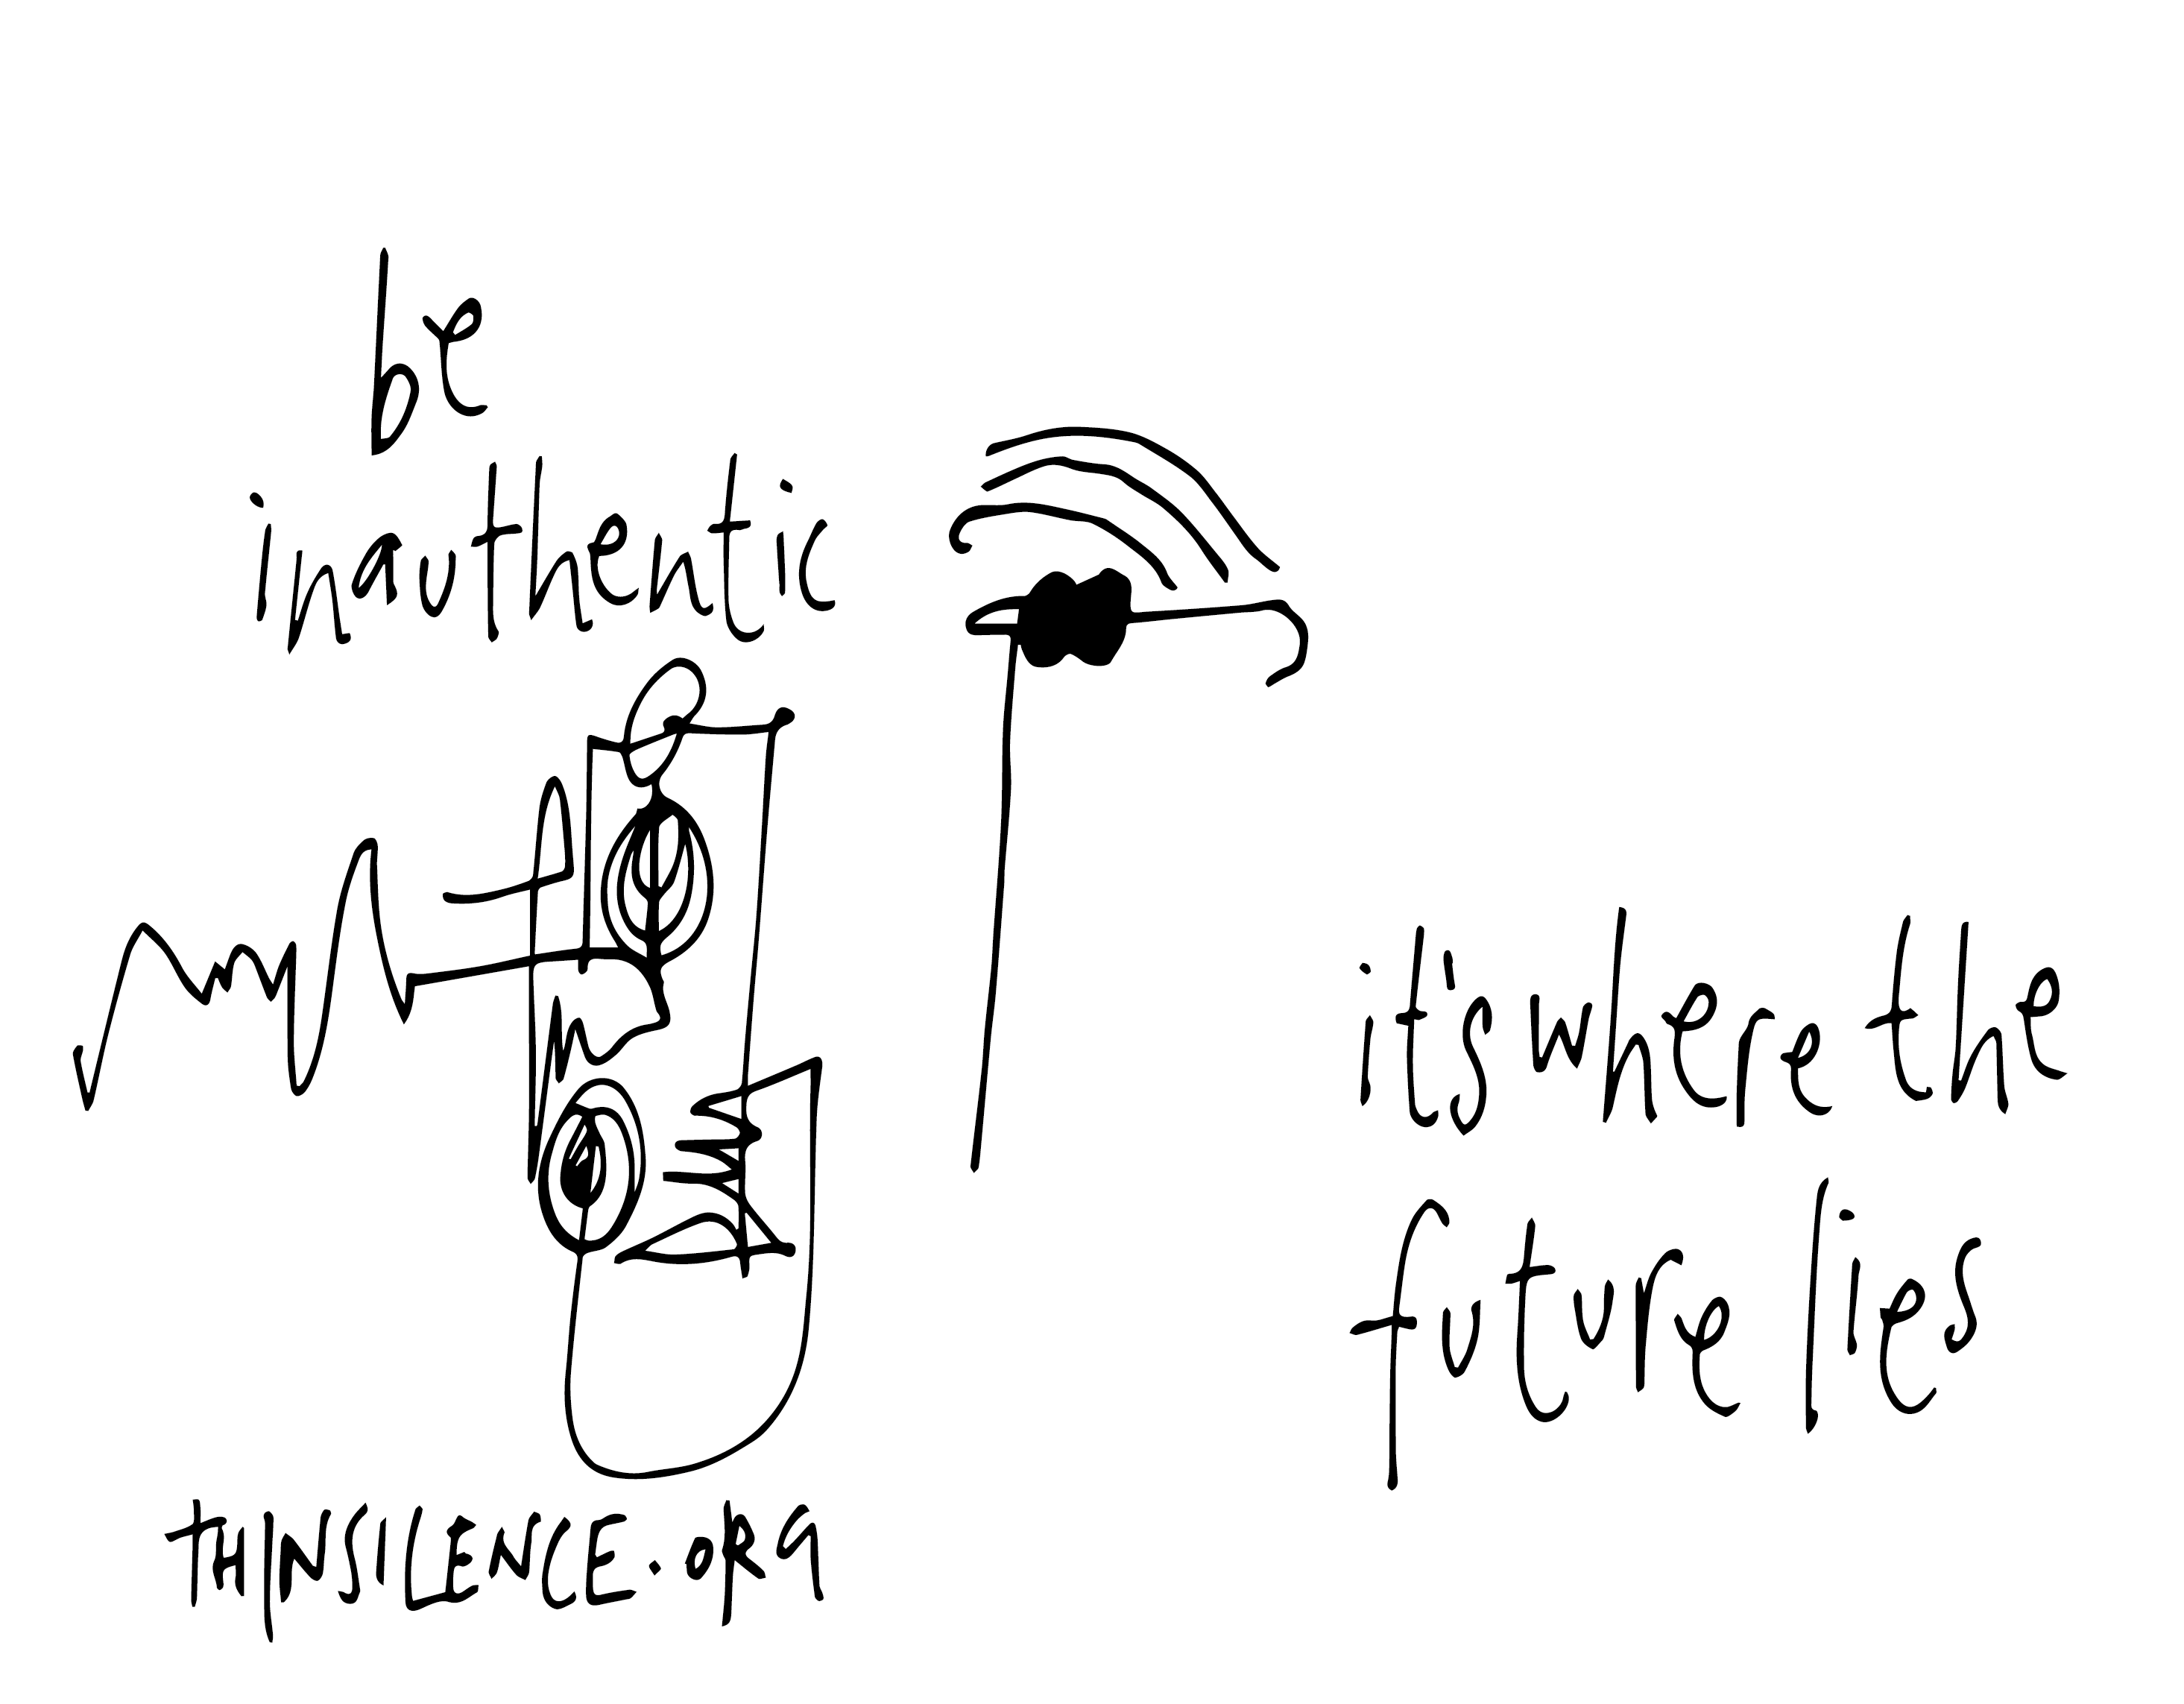 be
inauthentic
it's where the
future lies
THINSILENCE.ORG